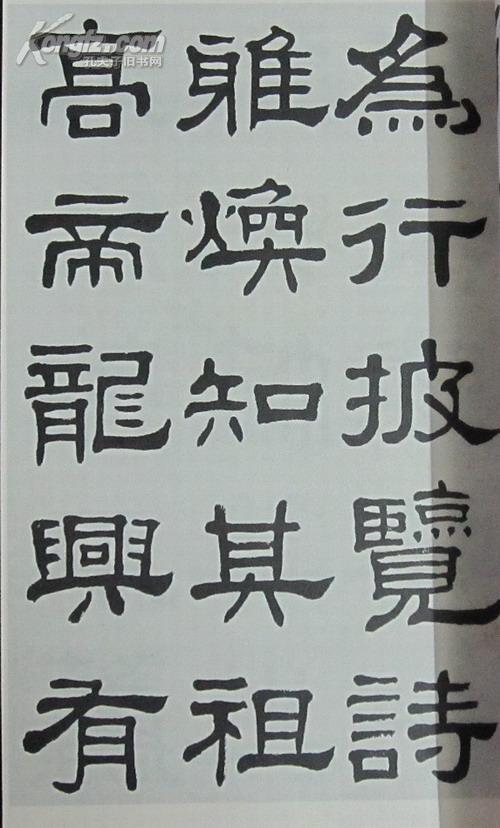 為行披覽詩
雅煥知其祖
高帝龍興有
Kongfz.com
孔夫子旧书网